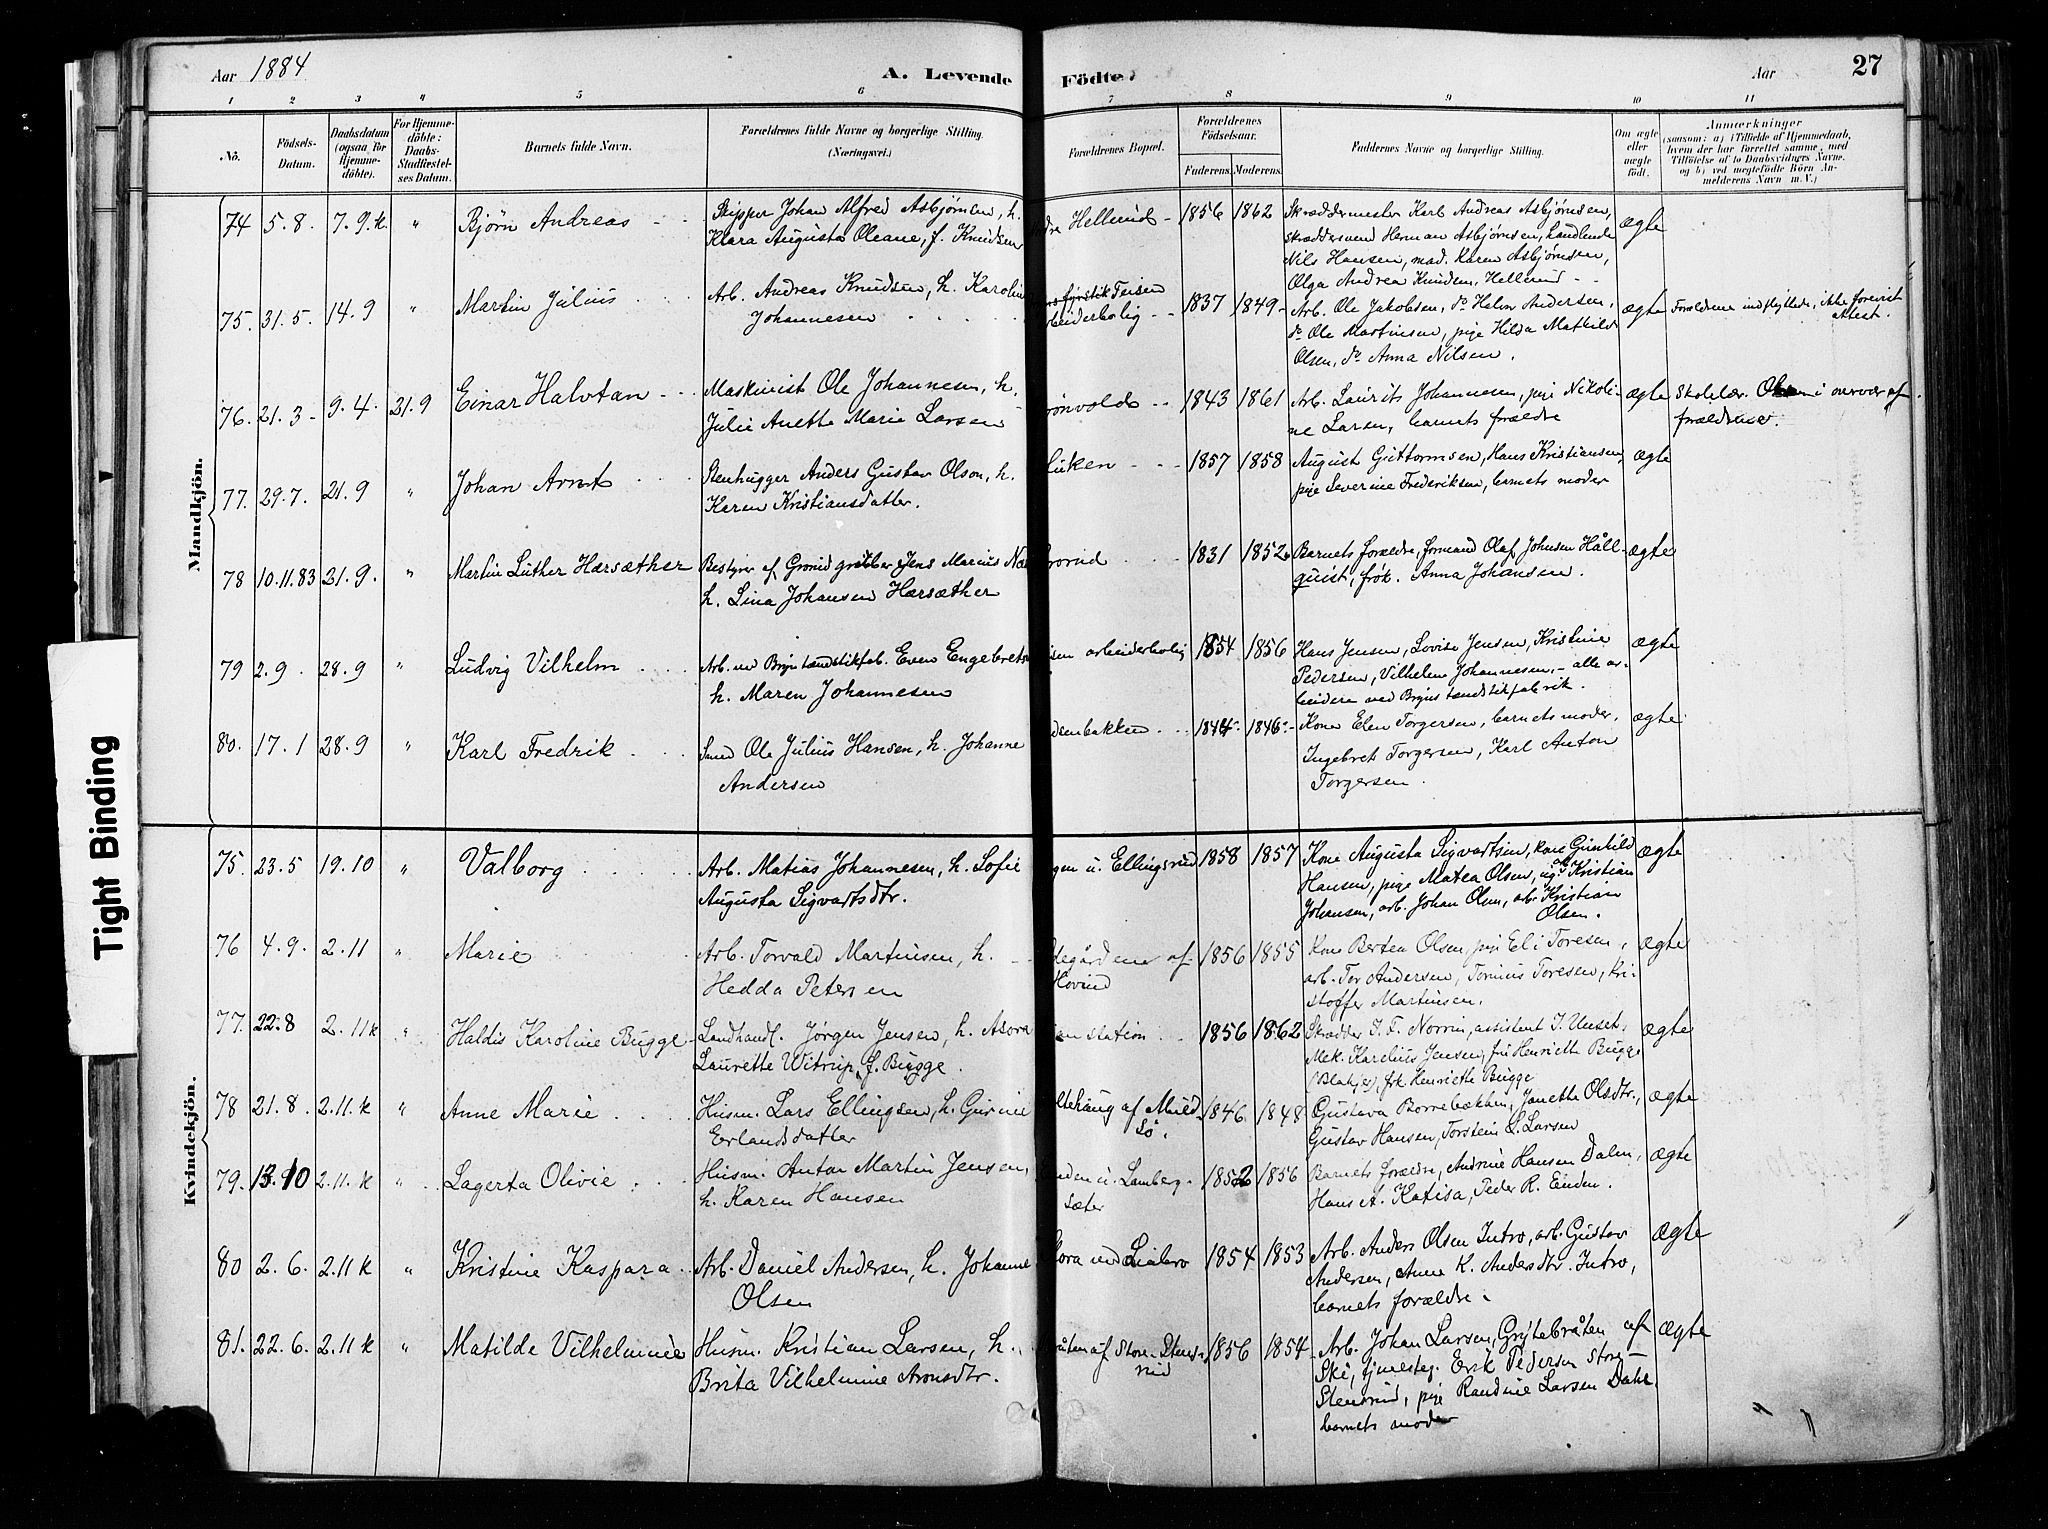 Aar 1884
A. Levende
Födte.
Aar
27
1 2 3 4 5 6 7 8 9 10 11
No.
Födsels-
Datum.
Daabsdatum
(ogsaa for
Hjemme-
döbte).
For Hjemme-
döbte:
Daabs-
Stadfæstel-
ses Datum.
Barnets fulde Navn.
Forældrenes fulde Navne og borgerlige Stilling.
(Næringsvei.)
Forældrenes Bopæl.
Forældrenes
Födselsaar.
Faderens. Moderens.
Faddernes Navne og borgerlige Stilling.
Om ægte
eller
uægte
födt.
Anmærkninger
(saasom: a) i Tilfælde af Hjemmedaab,
hvem der har forrettet samme, med
Tilföielse af to Daabsvidners Navne.
og b) ved uægtefödte Börn An-
melderens Navn m. V.)
Tight Binding
Mandkjön.
74 5.8. 7.9.k. " Bjørn Andreas
Skipper Johan Alfred Asbjørnsen, h.
Klara Augusta Oleane, f. Knudsen
Hellerud 1856 1862
Skræddermester Karl Andreas Asbjørnsen,
skræddersvend Herman Asbjørnsen, handlende
Nils Hansen, mad. Karen Asbjørnsen,
Olga Andrea Knudsen, Hellerud
ægte
75. 31.5. 14.9 " Martin Julius
Arb. Andreas Knudsen, h. Karoline
Johannesen
fyrstik Teisen
beiderbolig 1837 1849
Arb. Ole Jakobsen, do Halvor Andersen,
do Ole Martinsen, pige Hilda Mathilde
Olsen, do Anna Nilsen.
ægte
Forældrene indflyttede, ikke forevist
attest.
76. 21.3 9.4. 21.9 Einar Halvtan
Maskinist Ole Johannesen, h.
Julie Anette Marie Larsen
rønvold 1843 1861
Arb. Laurits Johannesen, pige Nikoli-
ne Larsen, barnets forældre
ægte
Skolelær. Olsen i overvær af
forældrene.
77. 29.7. 21.9 " Johan Arnt
Stenhugger Anders Gustav Olson, h.
Karen Kristiansdatter.
luken 1857 1858
August Guttormsen, Hans Kristiansen,
pige Severine Frederiksen, barnets moder
ægte
78 10.11.83 21.9. " Martin Luther Harsæther
Bestyrer af Grorud gruber Jens Marius
h. Lina Johansen Harsæther
rorud 1831 1852
Barnets forældre, formand Olaf Johnsen Håll-
quist, frøk. Anna Johansen.
ægte
79 2.9. 28.9 " Ludvig Vilhelm
Arb. ved Bryns tændstikfab. Even Engebretsen
h. Maren Johannesen
isen arbeiderbolig 1854 1856
Hans Jensen, Lovise Jensen, Kristine
Pedersen, Vilhelm Johannesen, alle ar-
beidere ved Bryns tændstikfabrik.
ægte
80. 17.1 28.9 " Karl Fredrik
Smed Ole Julius Hansen, h. Johanne
Andersen
dsenbakken 1844 1846
Kone Elen Torgersen, barnets moder,
Ingebret Torgersen, Karl Anton
Torgersen.
ægte
Kvindekjön.
75. 23.5 19.10 " Valborg
Arb. Matias Johannesen, h. Sofie
Augusta Sigvartsdtr.
gen u. Ellingsrud 1858 1857
Kone Augusta Sigvartsen, kone Gunhild
Hansen, pige Matea Olsen, ugk. Kristian
Johansen, arb. Johan Olsen, arb. Kristian
Olsen.
ægte
76 4.9. 2.11 " Marie
Arb. Torvald Martinsen, h.
Hedda Petersen
degårdene af
Hovind 1856 1855
Kone Berten Olsen, pige Eli Toresen,
arb. Tor Andersen, Tonius Toresen, Kri-
stoffer Martinsen.
ægte
77 22.8 2.11k " Haldis Karoline Bugge
Landhandl. Jørgen Jensen, h. Asora
Laurette Witrup, f. Bugge.
station 1856 1862
Skrædder J. F. Norrin, assistent J. Unset,
Mek. Karelius Jensen, fru Henriette Bugge
(Blakjer), frk Henriette Bugge
ægte
78 21.8. 2.11.k " Anne Marie
Husm. Lars Ellingsen, h. Gurine
Erlandsdatter
ltehaug af Mild-
sö. 1846 1848
Gustava Borrebækken, Janette Olsdtr.,
Gustav Hansen, Torstein L. Larsen
ægte
79. 13.10 2.11.k " Lagerta Olivie
Husm. Anton Martin Jensen,
h. Karen Hansen
nden u. Lamberg-
sæter 1852 1856
Barnets forældre, Andrine Hansen Dalen,
Hans A. Katisa, Peder R. Enden.
ægte
80 2.6. 2.11k " Kristine Kaspara
Arb. Daniel Andersen, h. Johanne
Olsen
ora ved Liabro 1854 1853
Arb. Anders Olsen Intro, arb. Gustav
Andersen, Anne K. Andersdtr. Intro,
barnets forældre.
ægte
81. 22.6. 2.11k " Matilde Vilhelmine
Husm. Kristian Larsen, h.
Brita Vilhelmine Aronsdtr.
råten af Store Stens-
rud 1856 1854
Arb. Johan Larsen, Grytebråten af
Ski, tjenestep. Erik Pedersen Store
Stensrud, pige Randine Larsen Dahl,
barnets moder
ægte